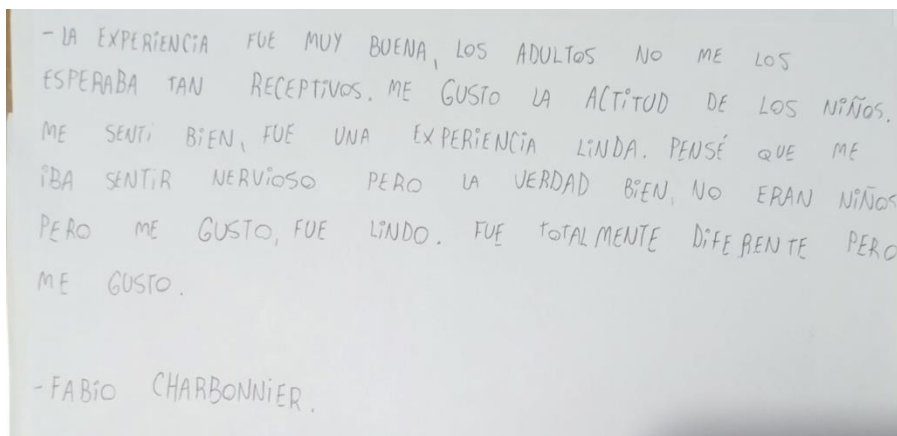 - LA EXPERIENCIA FUE MUY BUENA, LOS ADULTOS NO ME LOS
ESPERABA TAN RECEPTIVOS. ME GUSTO LA ACTITUD DE LOS NIÑOS.
ME SENTI BIEN, FUE UNA EXPERIENCIA LINDA. PENSÉ QUE ME
IBA SENTIR NERVIOSO PERO LA VERDAD BIEN, NO ERAN NIÑOS
PERO ME GUSTO, FUE LINDO. FUE TOTALMENTE DIFERENTE PERO
ME GUSTO.
- FABIO CHARBONNIER.